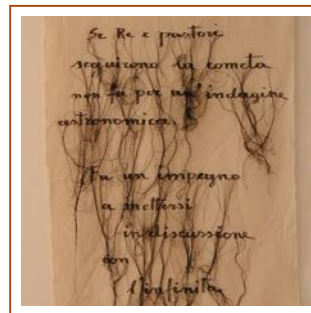 Se Re e pastori
seguirono la cometa
non fu per un'indagine
astronomica.
Fu un impegno
a mettersi
in discussione
con
l'infinità